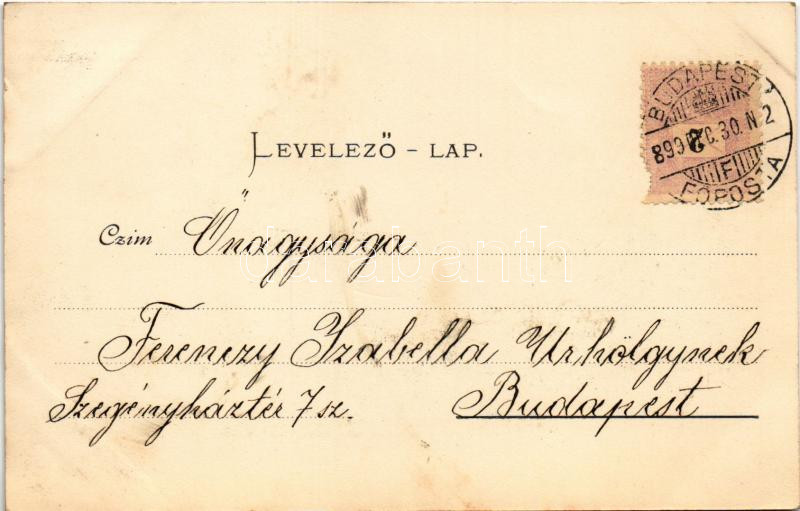 BUDAPEST
899 DEC. 30. N 2
F
FŐPOSTA
2
LEVELEZŐ - LAP.
Czim Önagysága
darabanth
Ferenczy Izabella Urhölgynek
Szegényháztér 7 sz. Budapest